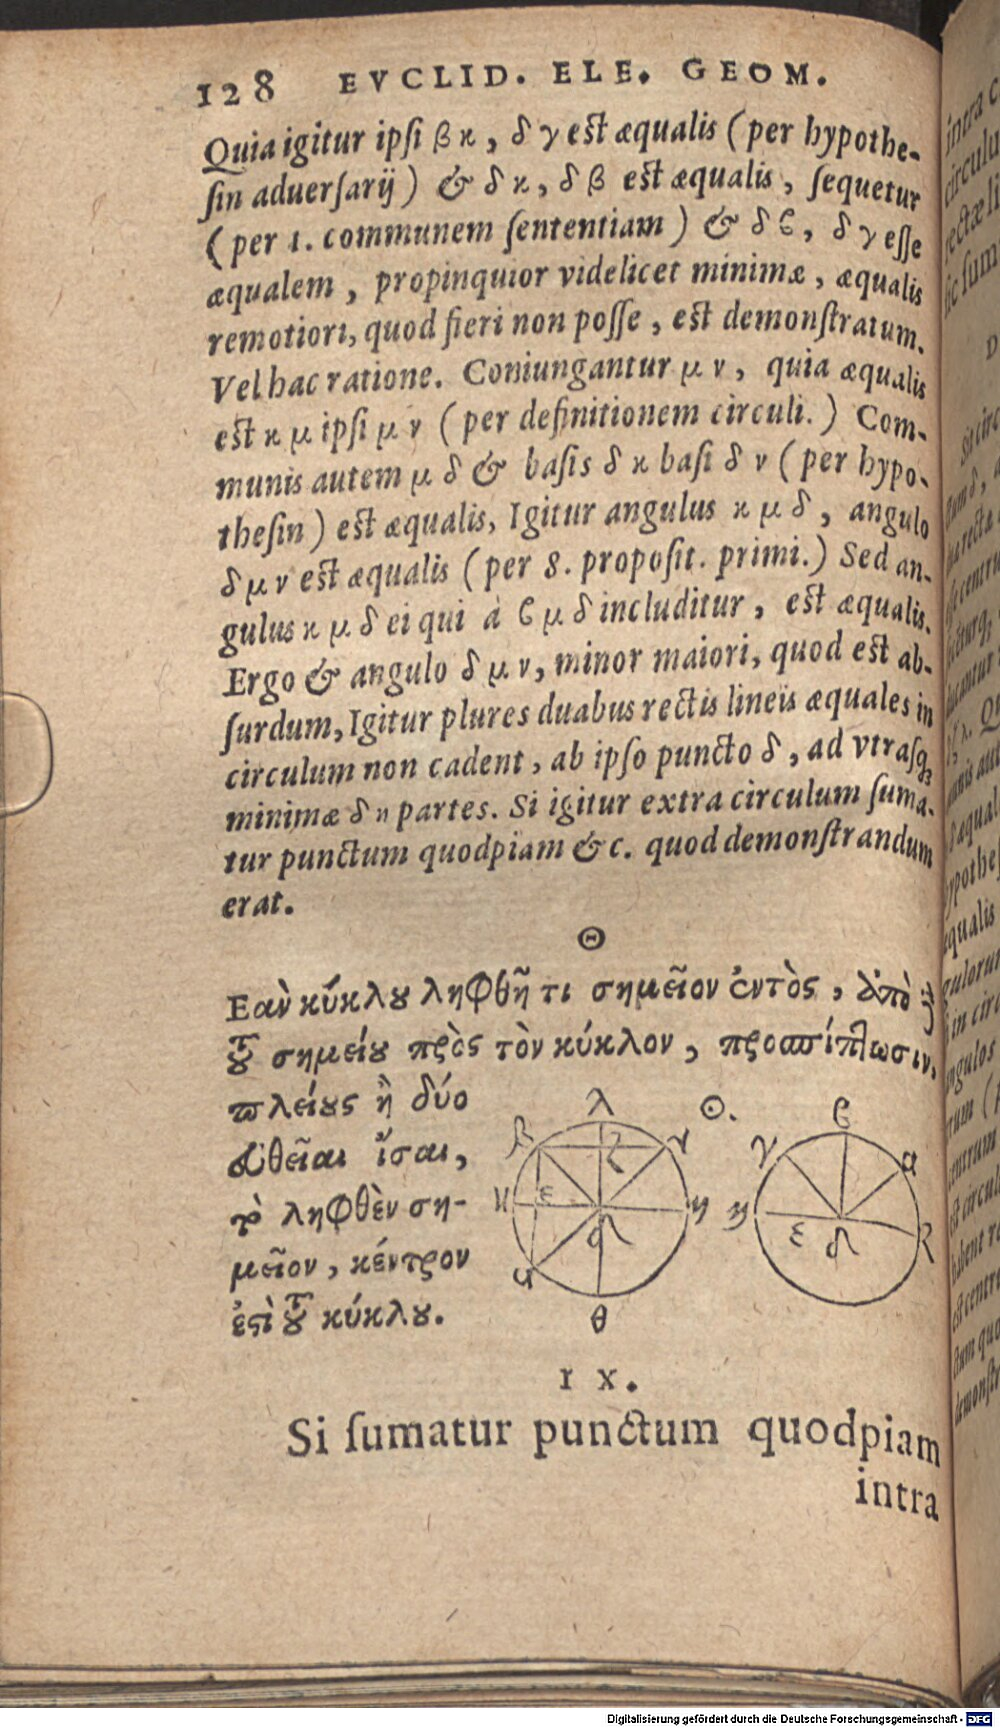 128 EVCLID. ELE. GEOM.
Quia igitur ipſi β κ, δ γ eſt æqualis (per hypothe-
ſin aduerſarij) & δ κ, δ β eſt æqualis, ſequetur
(per 1. communem ſententiam) & δ ϐ, δ γ eſſe
æqualem, propinquior videlicet minimæ, æqualis
remotiori, quod fieri non poſſe, eſt demonſtratum.
Vel hac ratione. Coniungantur μ ν, quia æqualis
eſt κ μ ipſi μ ν (per definitionem circuli.) Com-
munis autem μ δ & baſis δ κ baſi δ ν (per hypo-
theſin) eſt æqualis, Igitur angulus κ μ δ, angulo
δ μ ν eſt æqualis (per 8. propoſit. primi.) Sed an-
gulus κ μ δ ei qui à ϐ μ δ includitur, eſt æqualis.
Ergo & angulo δ μ ν, minor maiori, quod est ab-
ſurdum, Igitur plures duabus rectis lineis æquales in
circulum non cadent, ab ipſo puncto δ, ad vtraſq;
minimæ δ η partes. Si igitur extra circulum ſuma-
tur punctum quodpiam &c. quod demonſtrandum
erat.
Θ
Εαὶν κύκλου ληφθῆ τι σημεῖον ἐντὸς, ἀπὸ δὲ
τοῦ σημείου πρὸς τὸν κύκλον, προσπίπτωσιν,
πλείους ἢ δύο
εὐθεῖαι ἴσαι,
τὸ ληφθὲν ση-
μεῖον, κέντρον
ἐστὶ τοῦ κύκλου.
λ Θ. ϐ
β ζ γ γ α
κ ε η η
δ ε δ ζ
α
θ
IX.
Si ſumatur punctum quodpiam
intra
Digitalisierung gefördert durch die Deutsche Forschungsgemeinschaft - DFG